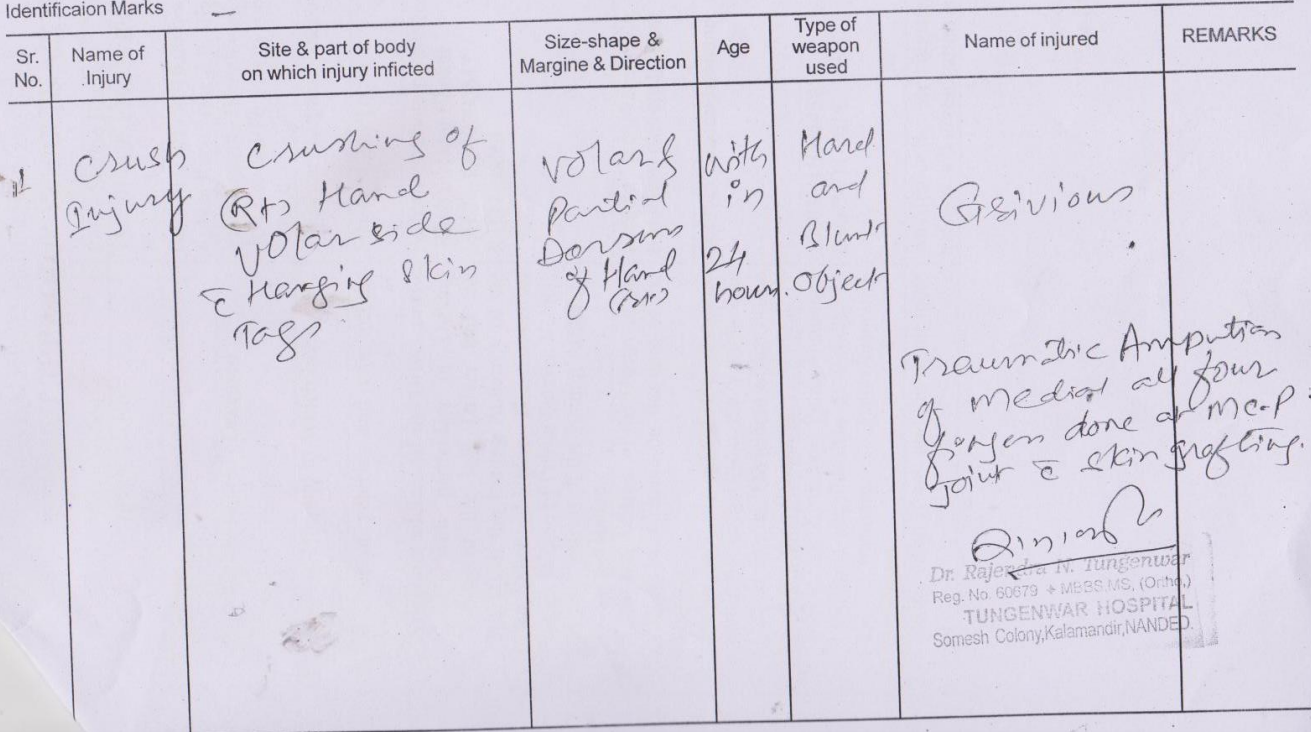 Identificaion Marks —
Sr. No.
Name of Injury
Site & part of body on which injury inficted
Size-shape & Margine & Direction
Age
Type of weapon used
Name of injured
REMARKS
1
Crush
Injury
Crushing of
(Rt) Hand
Volar side
c̄ Hanging Skin
Tags
Volar &
Partial
Dorsum
of Hand
with
in
24
hours.
Hard
and
Blunt
Object
Grivious
Traumatic Ampution
of medial all four
fingers done at MC-P
joint c̄ skin grafting.
Dr. Rajendra N. Tungenwar
Reg. No. 60679 + MBBS,MS, (Ortho.)
TUNGENWAR HOSPITAL
Somesh Colony,Kalamandir,NANDED.